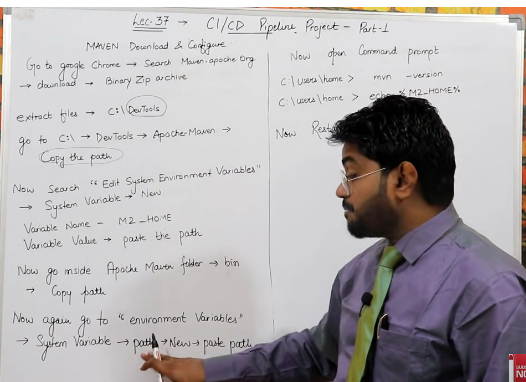 Lec-37 → CI/CD Pipeline Project - Part-1
MAVEN Download & Configure
Go to google Chrome → Search Maven.apache.org
→ download → Binary Zip archive
extract files → C:\DevTools
go to C:\ → DevTools → Apache-Maven →
Copy the path
Now Search "Edit System Environment Variables"
→ System Variable → New
Variable Name - M2_HOME
Variable Value → paste the path
Now go inside Apache Maven folder → bin
→ Copy path
Now again go to "environment Variables"
→ System Variable → path → New → paste path
Now open Command prompt
C:\users\home > mvn -version
C:\users\home > echo %M2-HOME%
Now